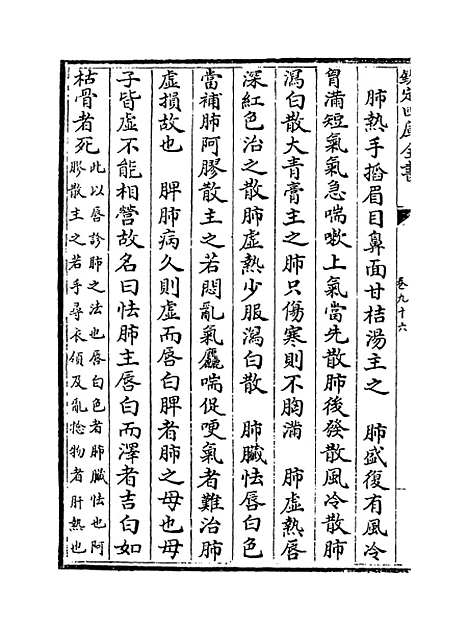 欽定四庫全書
卷九十六
肺熱手搯眉目鼻面甘桔湯主之　肺盛復有風冷
胷滿短氣氣急喘嗽上氣當先散肺後發散風冷散肺
瀉白散大青膏主之肺只傷寒則不胸滿　肺虛熱唇
深紅色治之散肺虛熱少服瀉白散　肺臟怯唇白色
當補肺阿膠散主之若悶亂氣麤喘促哽氣者難治肺
虛損故也　脾肺病久則虛而唇白脾者肺之母也母
子皆虛不能相營故名曰怯肺主唇白而澤者吉白如
枯骨者死此以唇診肺之法也唇白色者肺臟怯也阿
膠散主之若手尋衣領及亂捻物者肝熱也